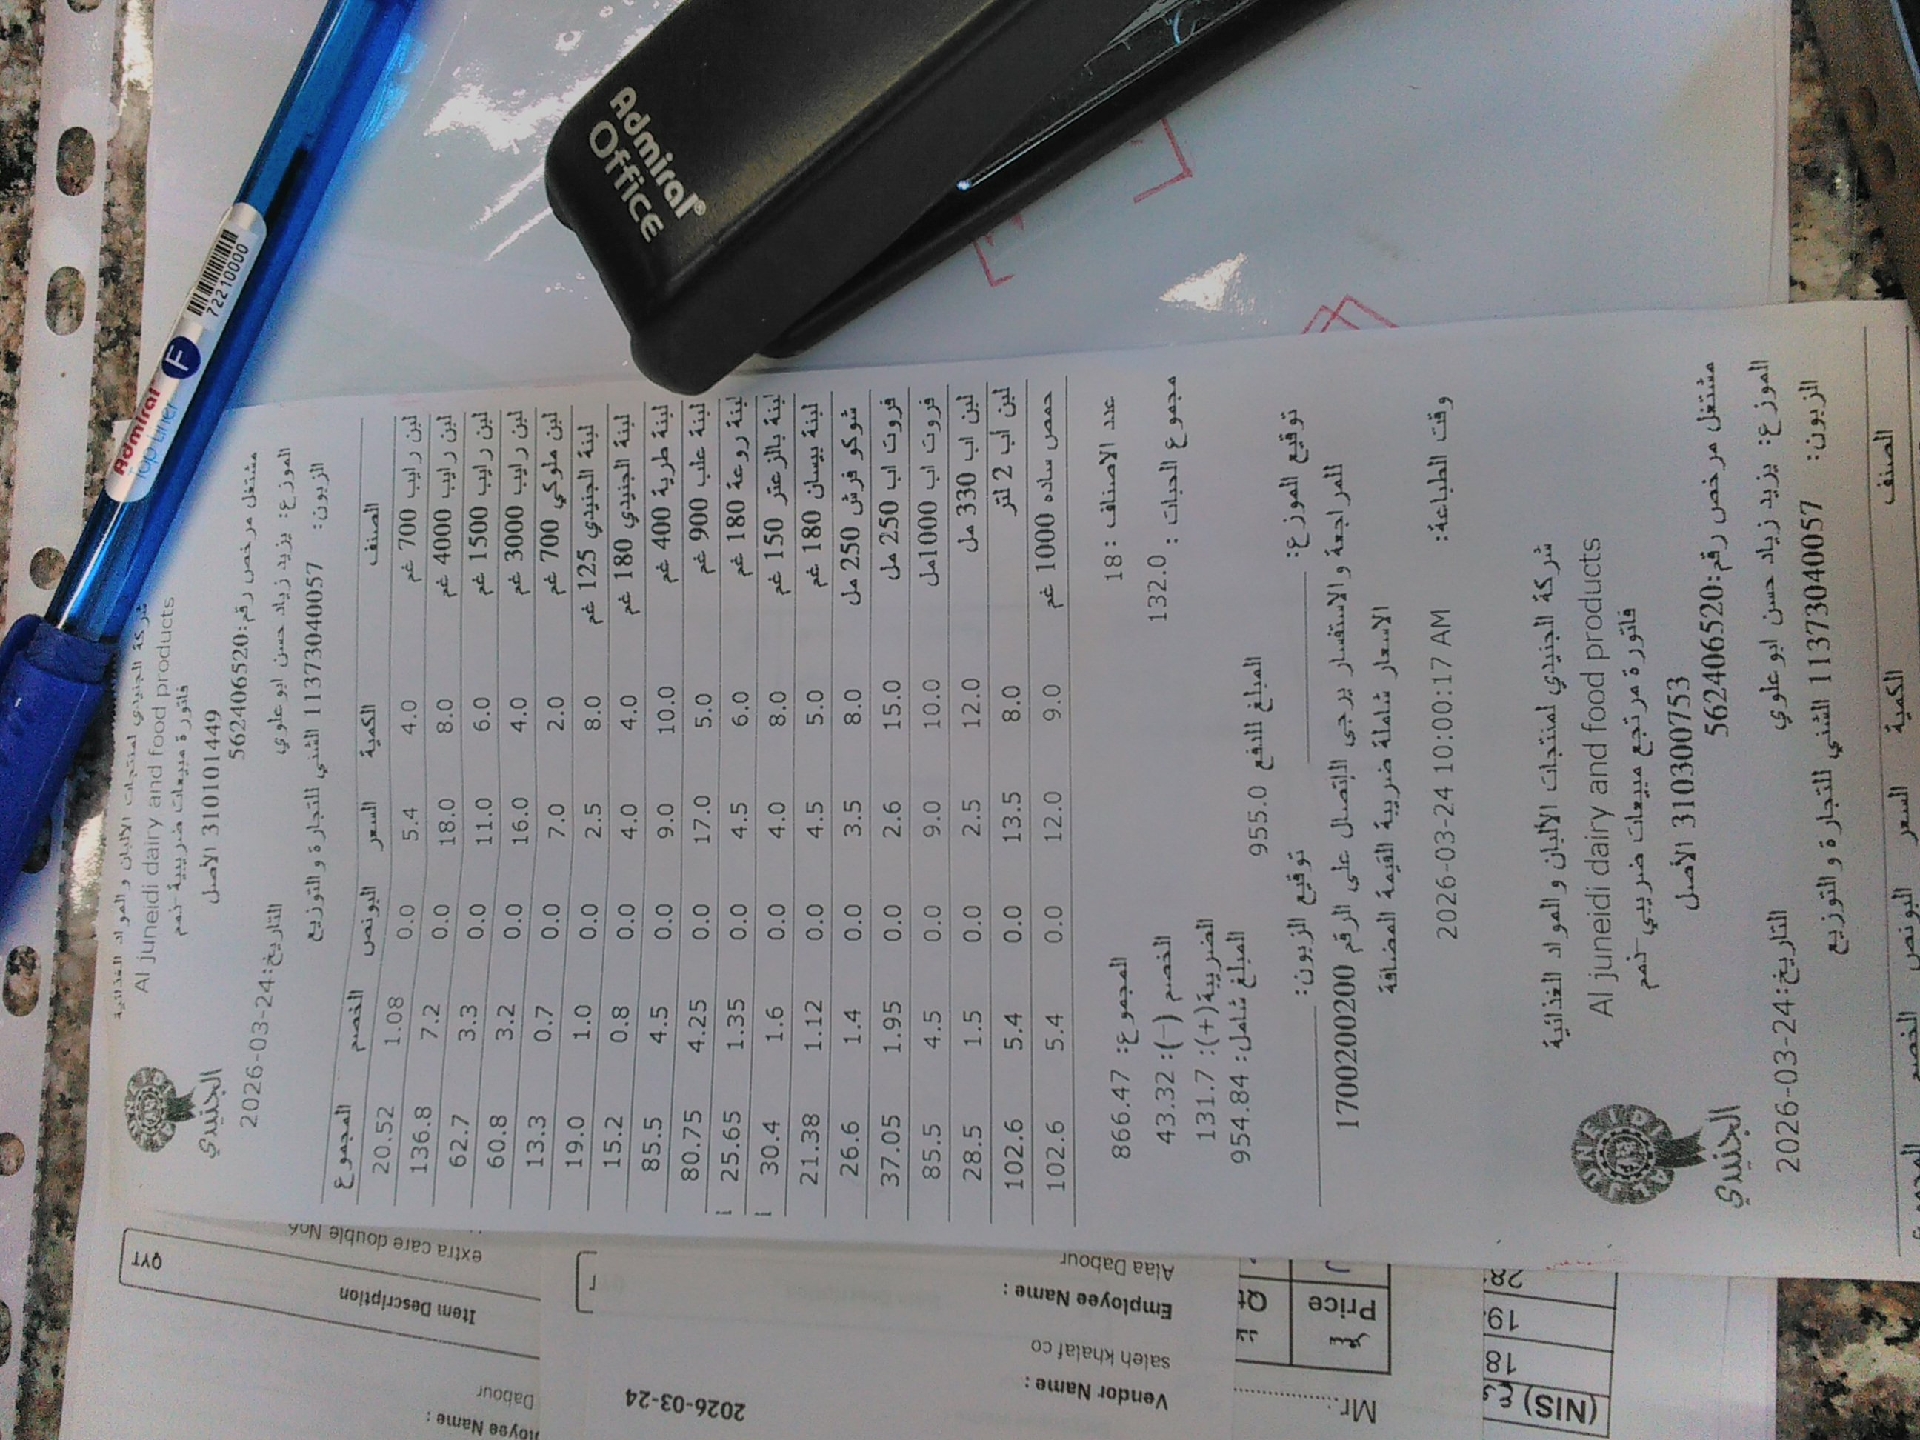 Admiral
Office
Admiral
Top Liner
F
72210000
شركة الجنيدي لمنتجات الالبان والمواد الغذائية
Al juneidi dairy and food products
فاتورة مبيعات ضريبية -نمم
310101449 الأصل
الجنيدي
مشتغل مرخص رقم:562406520
الموزع: يزيد زياد حسن ابو علوي
التاريخ:2026-03-24
الزبون: 11373040057 الشني للتجارة والتوزيع
الصنف الكمية السعر البونص الخصم المجموع
لبن رايب 700 غم 4.0 5.4 0.0 1.08 20.52
لبن رايب 4000 غم 8.0 18.0 0.0 7.2 136.8
لبن رايب 1500 غم 6.0 11.0 0.0 3.3 62.7
لبن رايب 3000 غم 4.0 16.0 0.0 3.2 60.8
لبن ملوكي 700 غم 2.0 7.0 0.0 0.7 13.3
لبنة الجنيدي 125 غم 8.0 2.5 0.0 1.0 19.0
لبنة الجنيدي 180 غم 4.0 4.0 0.0 0.8 15.2
لبنة طرية 400 غم 10.0 9.0 0.0 4.5 85.5
لبنة علب 900 غم 5.0 17.0 0.0 4.25 80.75
لبنة روعة 180 غم 6.0 4.5 0.0 1.35 25.65
لبنة بالزعتر 150 غم 8.0 4.0 0.0 1.6 30.4
لبنة بيسان 180 غم 5.0 4.5 0.0 1.12 21.38
شوكو فرش 250 مل 8.0 3.5 0.0 1.4 26.6
فروت اب 250 مل 15.0 2.6 0.0 1.95 37.05
فروت اب 1000مل 10.0 9.0 0.0 4.5 85.5
لبن اب 330 مل 12.0 2.5 0.0 1.5 28.5
لبن اب 2 لتر 8.0 13.5 0.0 5.4 102.6
حمص ساده 1000 غم 9.0 12.0 0.0 5.4 102.6
عدد الاصناف : 18 المجموع: 866.47
مجموع الحبات : 132.0 الخصم (-): 43.32
الضريبة(+): 131.7
المبلغ للدفع 955.0 المبلغ شامل: 954.84
توقيع الموزع: توقيع الزبون:
للمراجعة والاستفسار يرجى الاتصال على الرقم 1700200200
الاسعار شاملة ضريبة القيمة المضافة
وقت الطباعة: 2026-03-24 10:00:17 AM
شركة الجنيدي لمنتجات الالبان والمواد الغذائية
Al juneidi dairy and food products
فاتورة مرتجع مبيعات ضريبي -نمم
310300753 الأصل
الجنيدي
مشتغل مرخص رقم:562406520
الموزع: يزيد زياد حسن ابو علوي
التاريخ:2026-03-24
الزبون: 11373040057 الشني للتجارة والتوزيع
الصنف الكمية السعر البونص الخصم المجموع
extra care double No6
Item Description
QYT
Dabour
Alaa Dabour
Employee Name :
saleh khalaf co
Vendor Name :
2026-03-24
Price
Mr.:
(NIS)
18
19
28